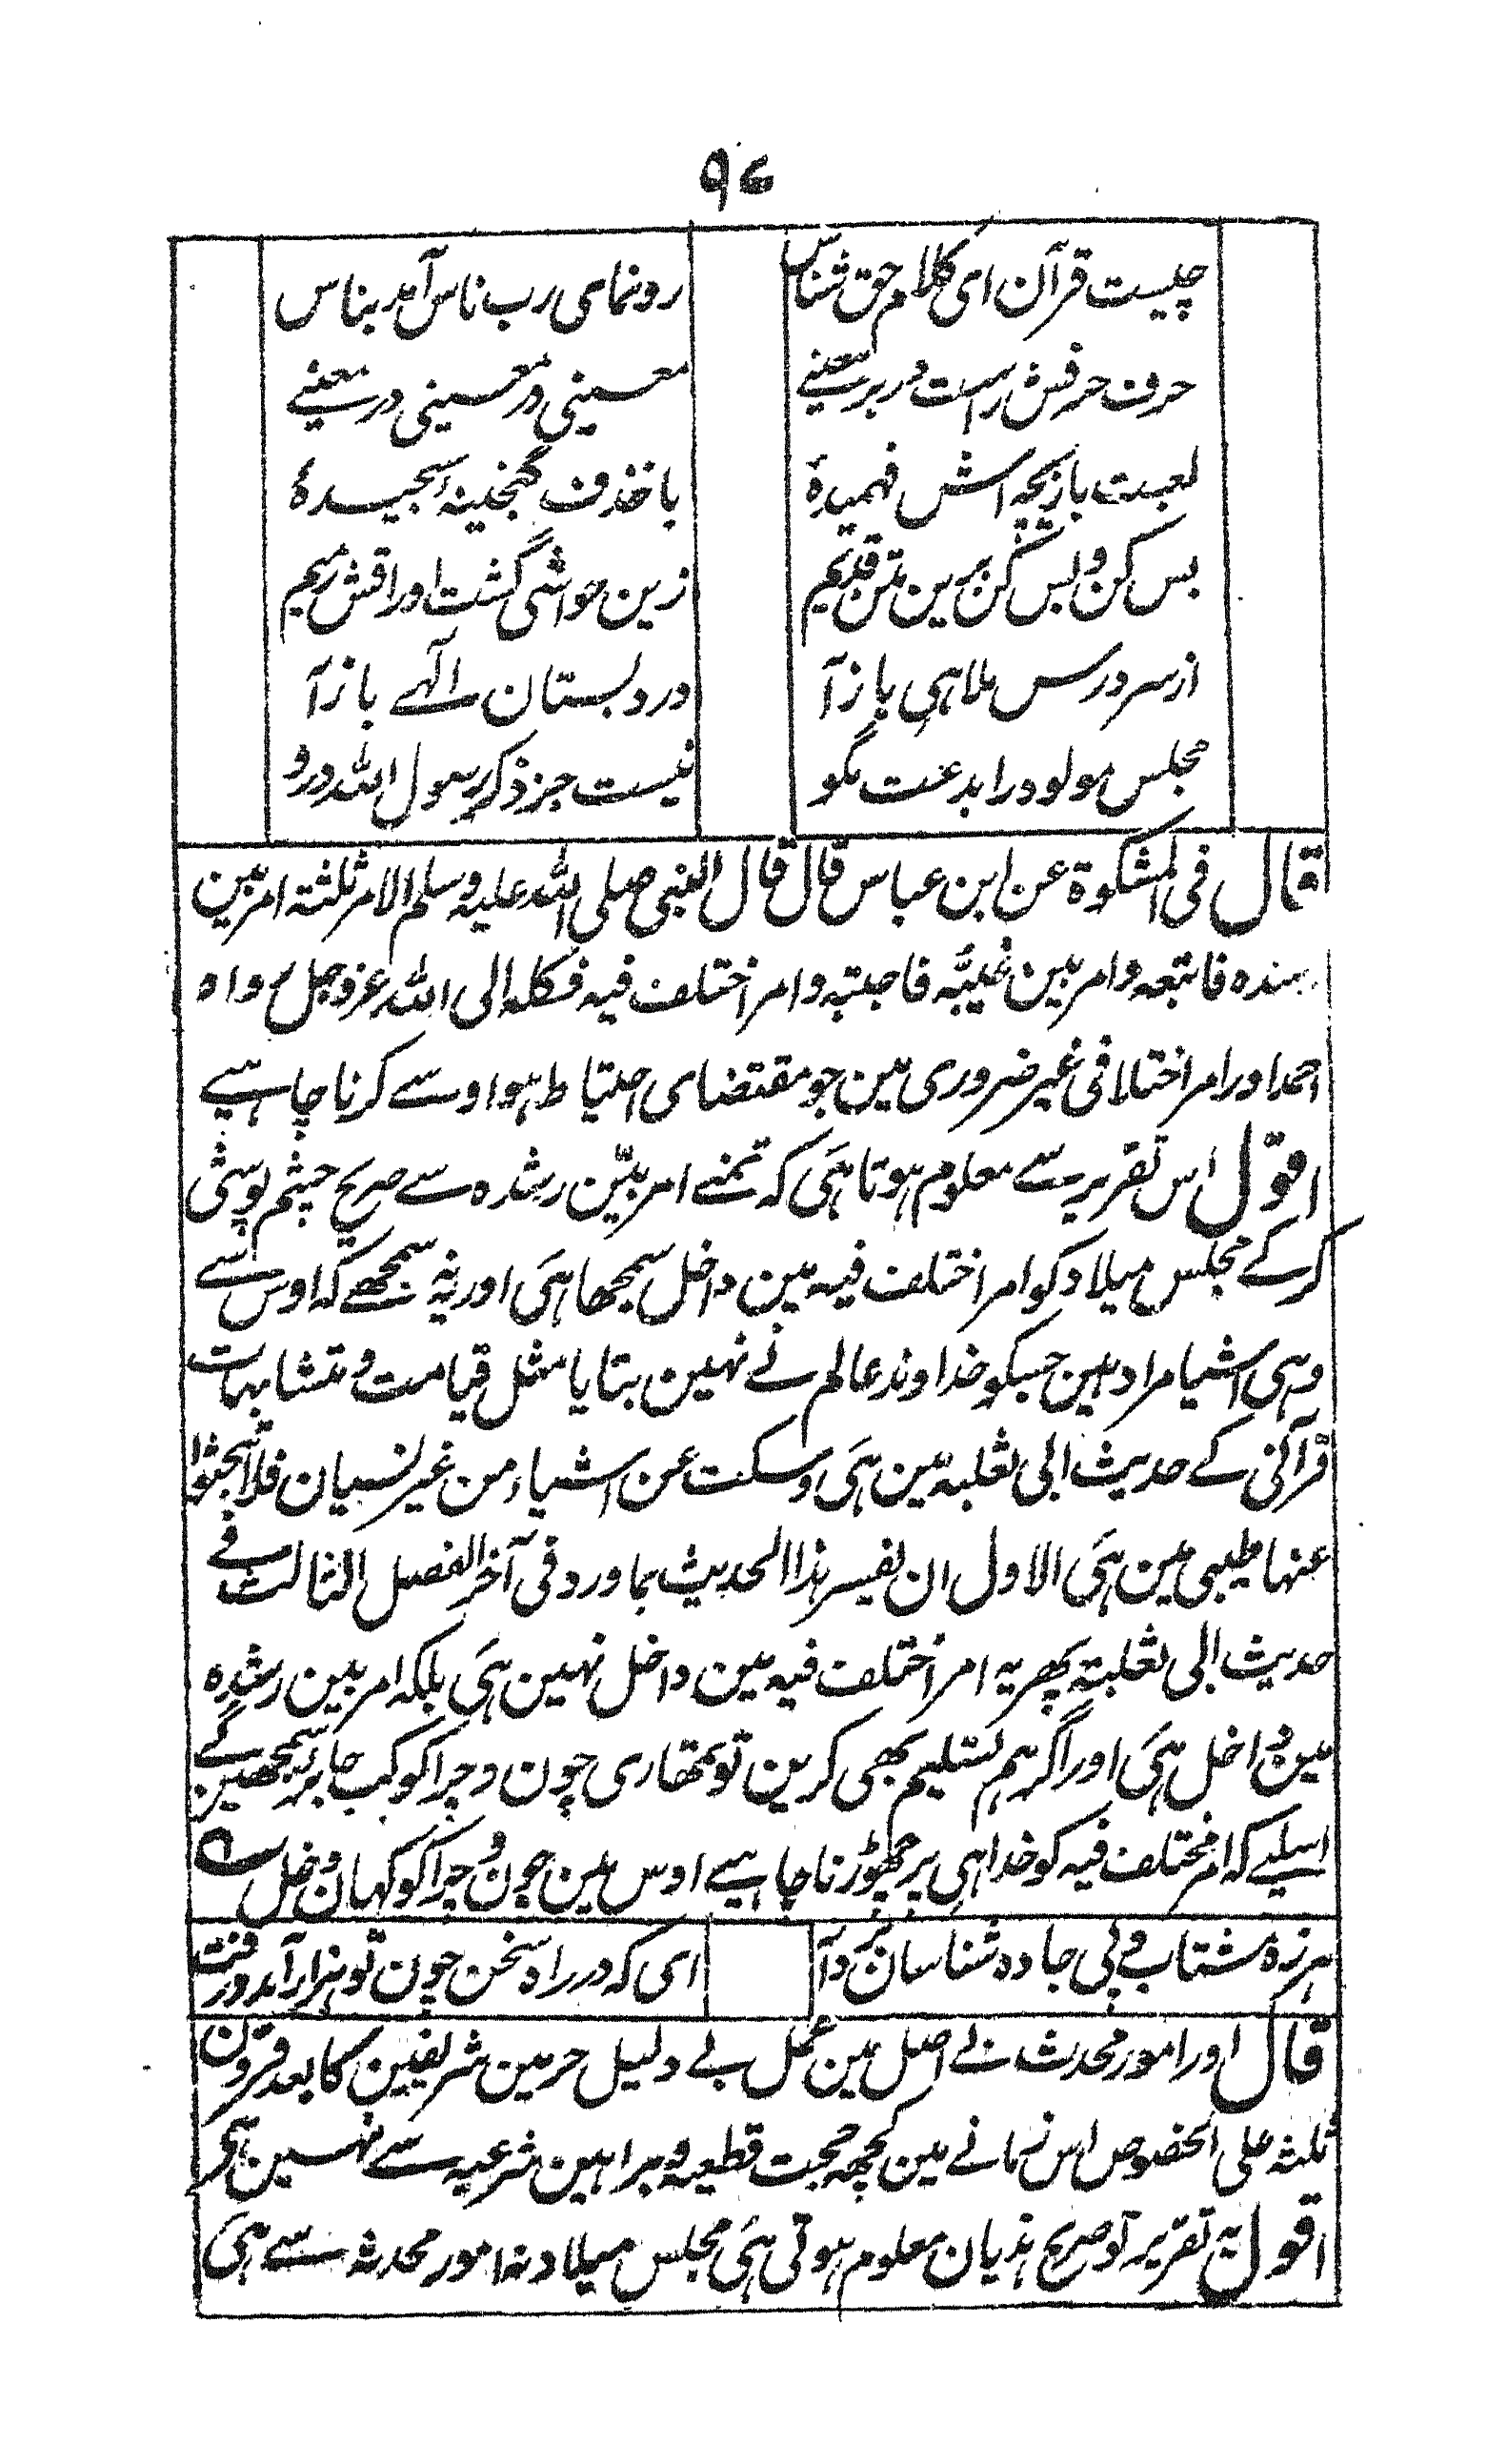 ۹۷
چیست قرآن ای کلام حق شناس رونمای رب ناس آمد بناس
حرف حرفش راست در بر معنیے معنیی در معنیی در معنیے
لعبت بازیچہ اش فہمیدۂ با خذف گنجینہ سنجیدۂ
بس کن و بس کن برین متن قدیم زین حواشی گشت اوراقش رمیم
از سر درس ملاہی باز آ در دبستان الٰہے باز آ
مجلس مولود را بدعت مگو نیست جز ذکر رسول اللہ درو
قال فی المشکوة عن ابن عباس قال قال النبی صلی اللہ علیہ وسلم الامر ثلثة امر بین
رشده فاتبعہ و امر بین غیّہ فاجتنبہ و امر اختلف فیہ فکلہ الی اللہ عز و جل رواہ
احمد اور امر اختلافی غیر ضروری مین جو مقتضای احتیاط ہو اوسے کرنا چاہیے
اقول اس تقریر سے معلوم ہوتا ہی کہ تمنے امر بیّن رشدہ سے صریح چشم پوشی
کرکے مجلس میلاد کو امر اختلف فیہ مین داخل سمجھا ہی اور یہ نہ سمجھے کہ اوس سے
وہی اشیا مراد ہین جسکو خداوند عالم نے نہین بتایا مثل قیامت و متشابہات
قرآنی کے حدیث ابی ثعلبہ مین ہی وسکت عن اشیاء من غیر نسیان فلا تبحثوا
عنہا طیبی مین ہی الاول ان یفسر ہذا الحدیث بما ورد فی آخر الفصل الثالث فے
حدیث ابی ثعلبة پھر یہ امر اختلف فیہ مین داخل نہین ہی بلکہ امر بین رشدہ
مین داخل ہی اور اگر ہم تسلیم بھی کرین تو تمھاری چون و چرا کو کب جائز سمجھین گے
اسلیے کہ امر مختلف فیہ کو خدا ہی پر چھوڑنا چاہیے اوس مین چون و چرا کو کہان دخل
ہرزہ مشتاب و پی جادہ شناسان بردار ای کہ در راہ سخن چون تو ہزار آمد و رفت
قال اور امور محدث بے اصل مین عمل بے دلیل حرمین شریفین کا بعد قرون
ثلثہ علی الخصوص اس زمانے مین کچھ حجت قطعیہ و براہین شرعیہ سے نہین ہی
اقول یہ تقریر تو صریح ہذیان معلوم ہوتی ہی مجلس میلاد نہ امور محدثہ سے ہی